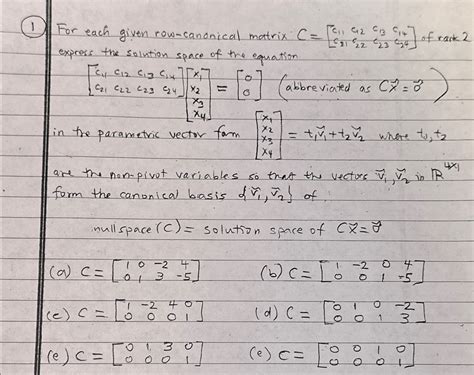 ① For each given row-canonical matrix C = [c11 c12 c13 c14; c21 c22 c23 c24] of rank 2
express the solution space of the equation
[c11 c12 c13 c14; c21 c22 c23 c24] [x1; x2; x3; x4] = [0; 0] (abbreviated as Cx⃗ = 0⃗)
in the parametric vector form [x1; x2; x3; x4] = t1v⃗1 + t2v⃗2 where t1, t2
are the non-pivot variables so that the vectors v⃗1, v⃗2 in ℝ^4x1
form the canonical basis {v⃗1, v⃗2} of
nullspace (C) = solution space of Cx⃗ = 0⃗
(a) C = [1 0 -2 4; 0 1 3 -5] (b) C = [1 -2 0 4; 0 0 1 -5]
(c) C = [1 -2 4 0; 0 0 0 1] (d) C = [0 1 0 -2; 0 0 1 3]
(e) C = [0 1 3 0; 0 0 0 1] (e) C = [0 0 1 0; 0 0 0 1]